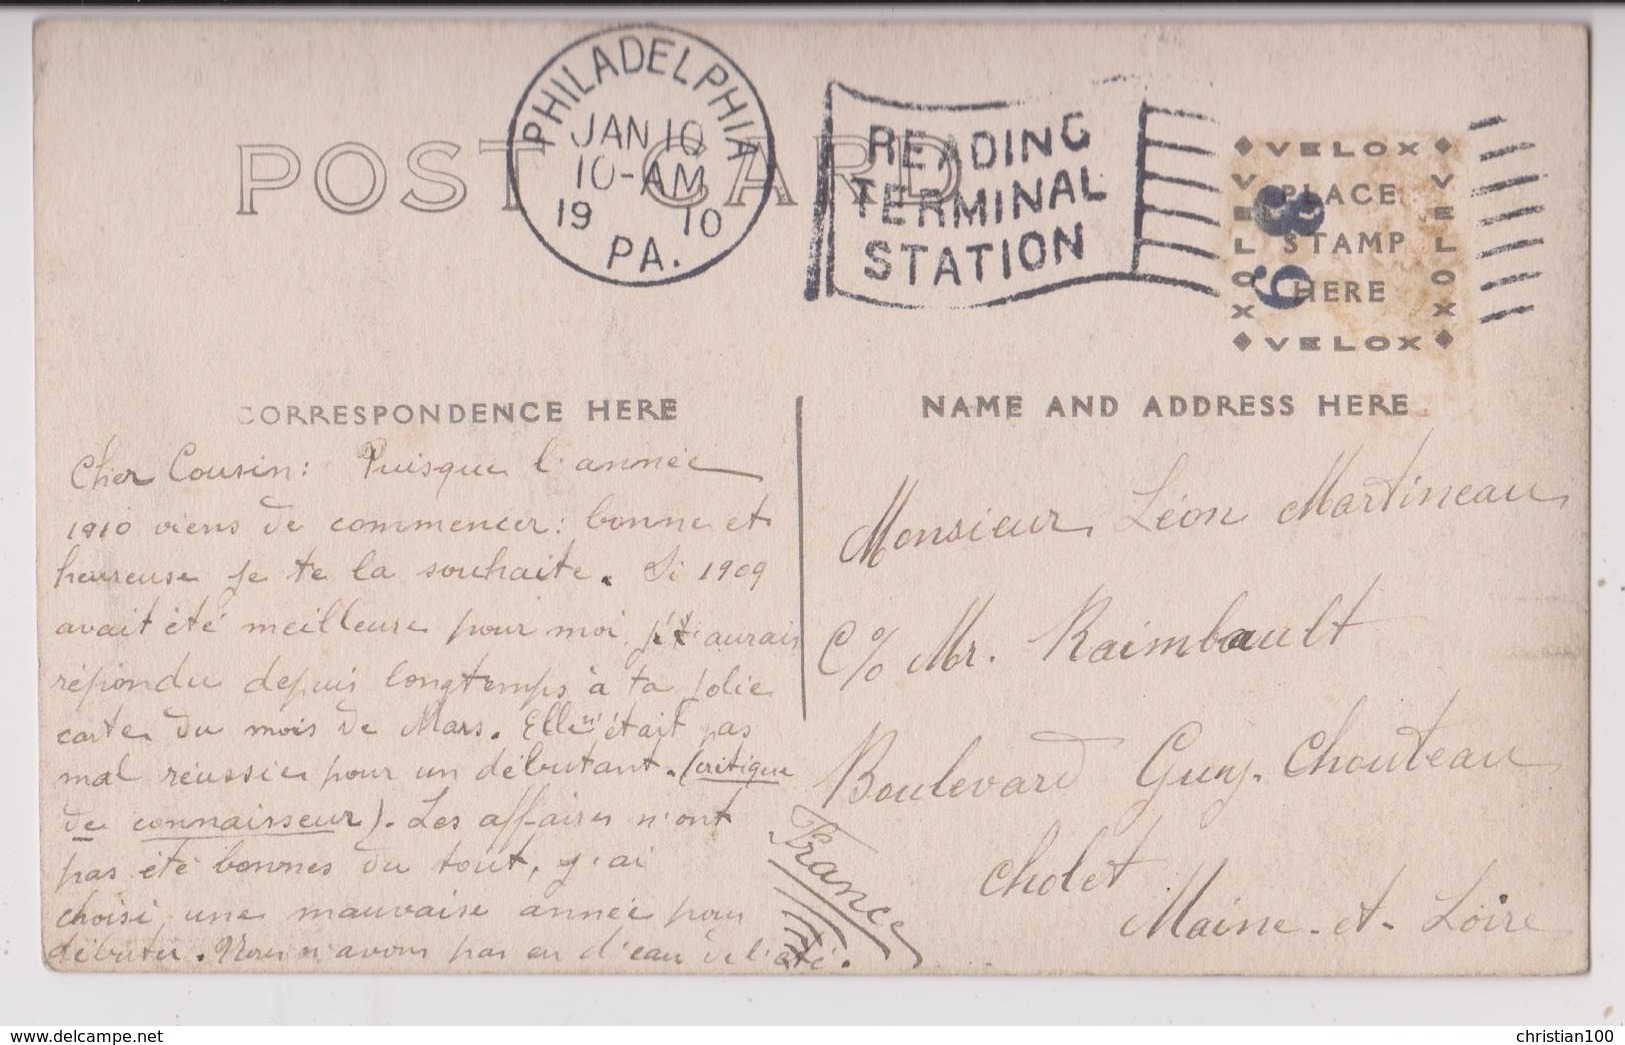 POST CARD
PHILADELPHIA
JAN 10
10-AM
19 10
PA.
READING
TERMINAL
STATION
VELOX
VELOX
PLACE
STAMP
HERE
VELOX
VELOX
8
6
CORRESPONDENCE HERE
Cher Cousin: Puisque l'année
1910 viens de commencer: bonne et
heureuse je te la souhaite. Si 1909
avait été meilleure pour moi, j't'aurais
répondu depuis longtemps à ta jolie
carte du mois de Mars. Elle n'était pas
mal réussie pour un débutant. (critique
de connaisseur). Les affaires n'ont
pas été bonnes du tout, j'ai
choisi une mauvaise année pour
débuter. Nous n'avons pas eu d'eau de l'été.
NAME AND ADDRESS HERE
Monsieur Léon Martineau
C/o Mr. Raimbault
Boulevard Guy-Chouteau
Cholet
Maine-et-Loire
France
delcampe.net
christian100